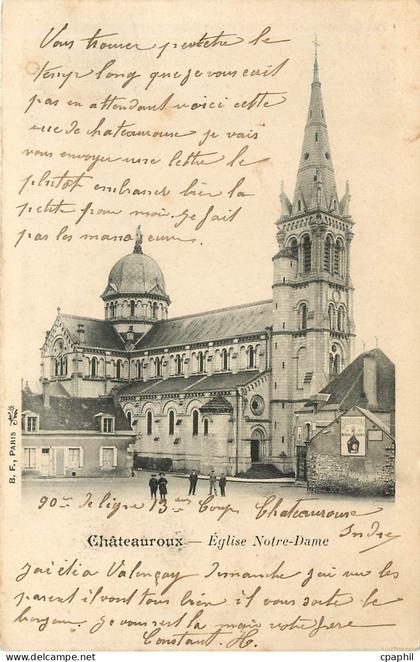 Vous trouver peutetre le
temp long que je vous ecrit
pas en attendant voici cette
vue de chateauroux je vais
vous envoyer une lettre le
plutôt embrasser bien la
petite pour moi. Je fait
pas les manœuvre
B. F., PARIS
90me de ligne 13me Comp Chateauroux
Indre
Châteauroux — Église Notre-Dame
J'ai étia Valençay Dimanche j'ai vu les
parent il vont tous bien il vous soute le
bonjour. Je vous sert la main votre frère
Constant H.
www.cpaphil